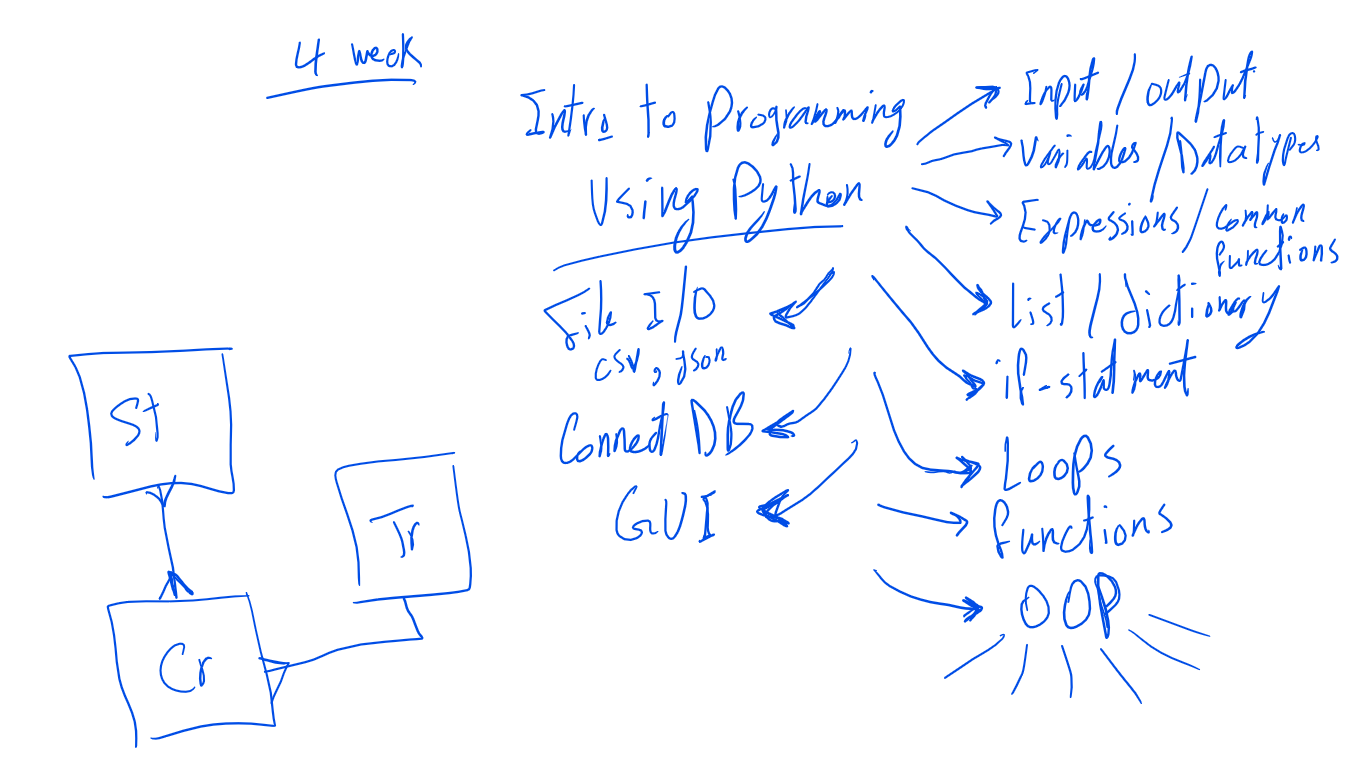 4 week
Intro to Programming
Using Python
Input / output
Variables / Datatypes
Expressions / common
functions
List / dictionary
if-statment
Loops
functions
OOP
File I/O
csv, json
Connect DB
GUI
St
Tr
Cr